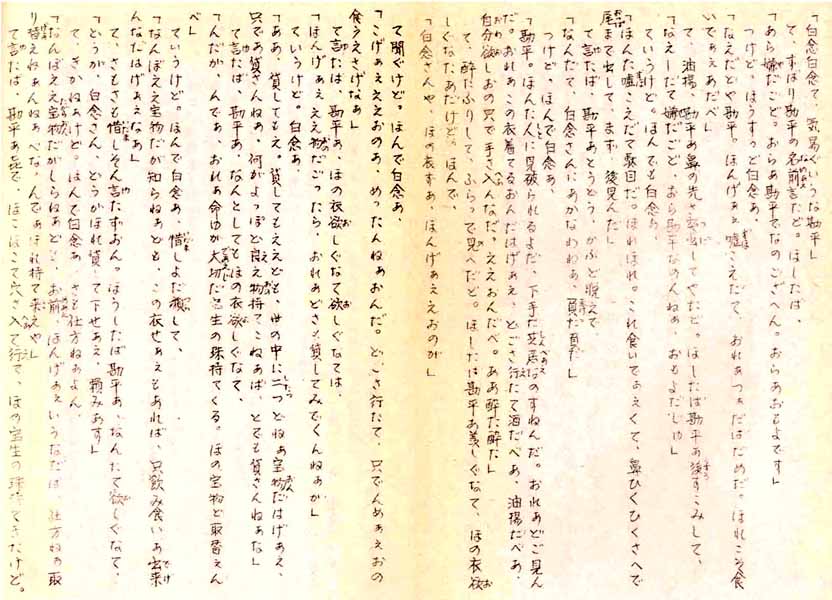 「白念白念て、気易ぐいうな勘平」
て、ずばり勘平の名前言だど。ほしたば、
「あら嫌だごど。おらあ勘平でなのござへん。おらあおもよです」
つけど、ほうすっど白念あ、
「なえだどや勘平。ほんげあえ嘘こえだて、おれあつあだばだめだ。ほれこ食
いであえあだべ」
て、油揚、勘平あ鼻の先さ突出してやだど。ほしたば勘平あ後すこみして、
「なえーだて嫌だごど、おら勘平なのんねあ、おもよだしゅ」
ていうけど。ほんでも白念あ、
「ほんた嘘こえだて駄目だ。ほれほれ。これ食いであえくて、鼻ひくひくさへで
尾まで出して。まず、後見んだ」
て言たば、勘平あとうとう、かぶど脱えで、
「なんだて、白念さんにあかなわねあ、負だ負だ」
つけど、ほんで白念あ、
「勘平。ほんた人に見破られるよだ、下手だ芝居なのすねんだ。おれあどご見ん
だ。おれあこの衣着てるおんだはげあえ、どごさ行たて酒だべあ、油揚だべあ、
自分欲しおの只で手さ入んなだ。ええおんだべ。ああ酔た酔た」
て、酔たふりして、ふらっで見へだど。ほしたば勘平あ羨しぐなて、ほの衣欲
しぐなたあだけど。ほんで、
「白念さんや、ほの衣すあ、ほんげあええおのが」
て聞ぐけど。ほんで白念あ、
「こげあええええおのあ、めったんねあおんだ。どごさ行たて、只でんめあえおの
食うえさげなあ」
て言たば、勘平あ、ほの衣欲しぐなて欲しぐなては、
「ほんげあえ、ええ物だごったら、おれあどさも貸してみでくんねあが」
ていうけど。白念あ、
「ああ、貸してもえ。貸してもええども、世の中に二つどねあ宝物だはげあえ、
只であ貸さんねあ、何がよっぽど良え物持てこねあば、とても貸さんねあな」
て言たば、勘平あ、なんとしてもほの衣欲しぐなて、
「んだが、んであ、おれあ命ゆが大切だ宝生の珠持てくる。ほの宝物ど取替えん
べ」
ていうけど。ほんで白念あ、惜しよだ顔して、
「なんぼええ宝物だが知らねあども、この衣せあえもあれば、只飲み食いあ出来
んなだはげあえなあ」
て、さもさも惜しそん言たずおん。ほうしたば勘平あ、なんたて欲しぐなて、
「どうが、白念さん、どうがほれ貸して下せあえ、頼みあす」
て、きかねあけど。ほんて白念あ、さも仕方ねあよん、
「なんぼええ宝物だがしらねあども、お前、ほんげあえいうなだば、仕方ねあ取
り替えねあんねあべな。んであほれ持て来えや」
て言たば、勘平あ喜で、ほこほこて穴さ入て行て、ほの宝生の珠持てきたけど。